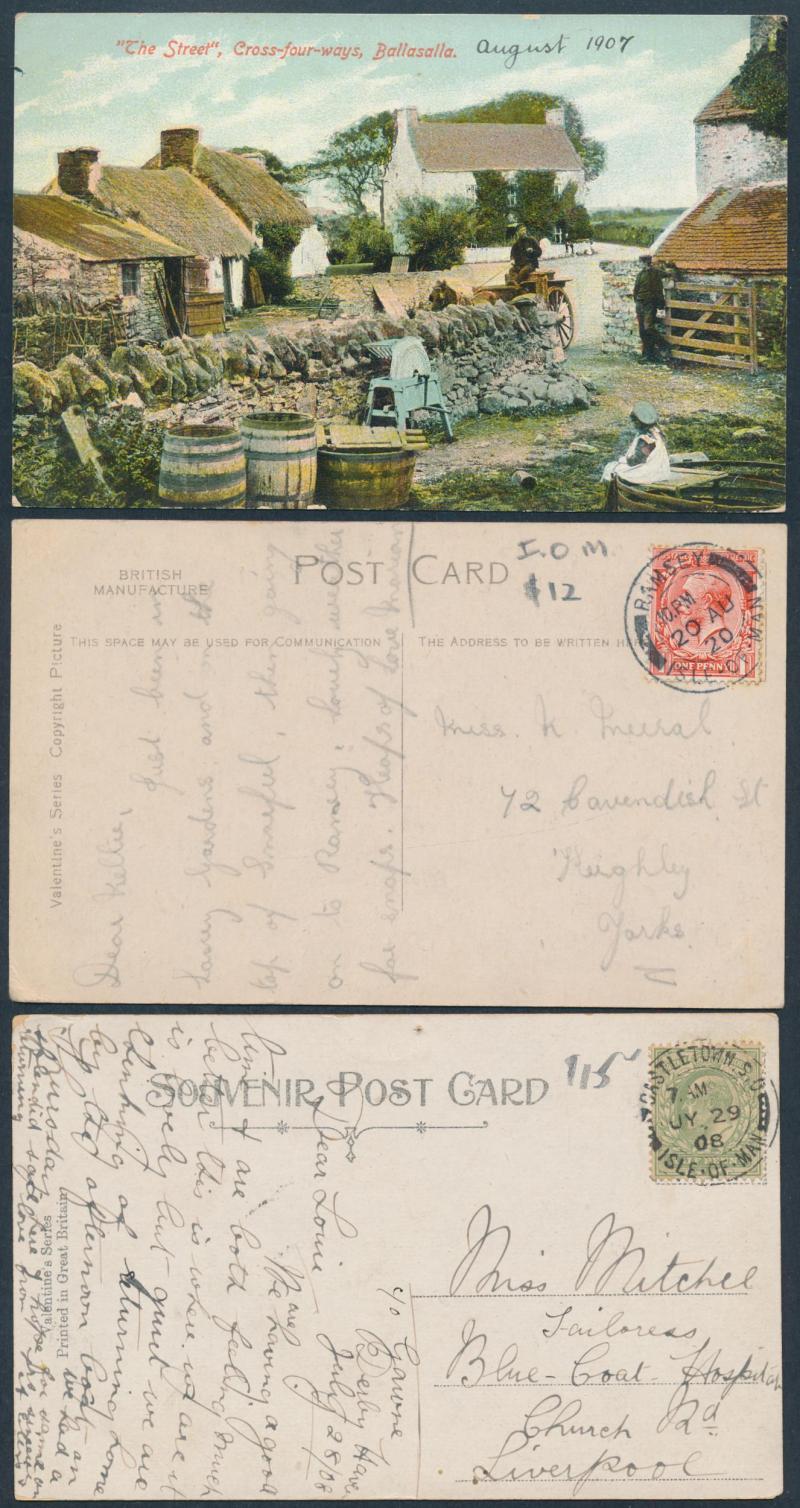 "The Street", Cross-four-ways, Ballasalla. August 1907
BRITISH
MANUFACTURE
POST CARD
I.O.M
$12
RAMSEY
10.PM
20 AU
20
ISLE OF MAN
ONE PENNY
THIS SPACE MAY BE USED FOR COMMUNICATION
THE ADDRESS TO BE WRITTEN HE
Valentine's Series Copyright Picture
Dear Nellie,
Just been in
Laxey Gardens and in the
top of Snaefell, then going
on to Ramsey; lovely weather
for snaps. Heaps of love Marian
Miss. N.
72 Cavendish St
Keighley
Yorks
SOUVENIR POST CARD
$15
CASTLETOWN S.O
7 AM
JY 29
08
ISLE OF MAN
Valentine's Series
Printed in Great Britain
c/o Gawne
Derby Haven
July 28/08
Dear Louie
We are having a good
time & are both feeling much
better this is where we are it
is lovely but quiet we are
thinking of returning home
by the afternoon boat on
Thursday we had a
splendid sail here I hope for same on
returning
love from
Miss Mitchel
Tailoress
Blue-Coat-Hospital
Church Rd
Liverpool